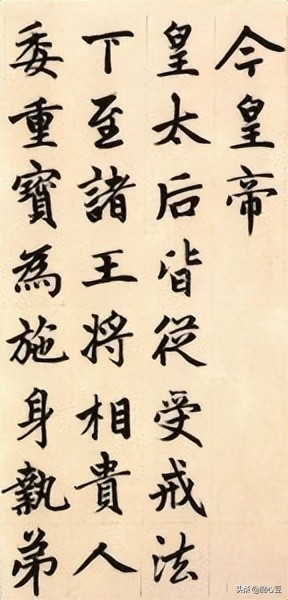 今皇帝
皇太后皆從受戒法
下至諸王將相貴人
委重寶為施身執弟
头条@糊心豆